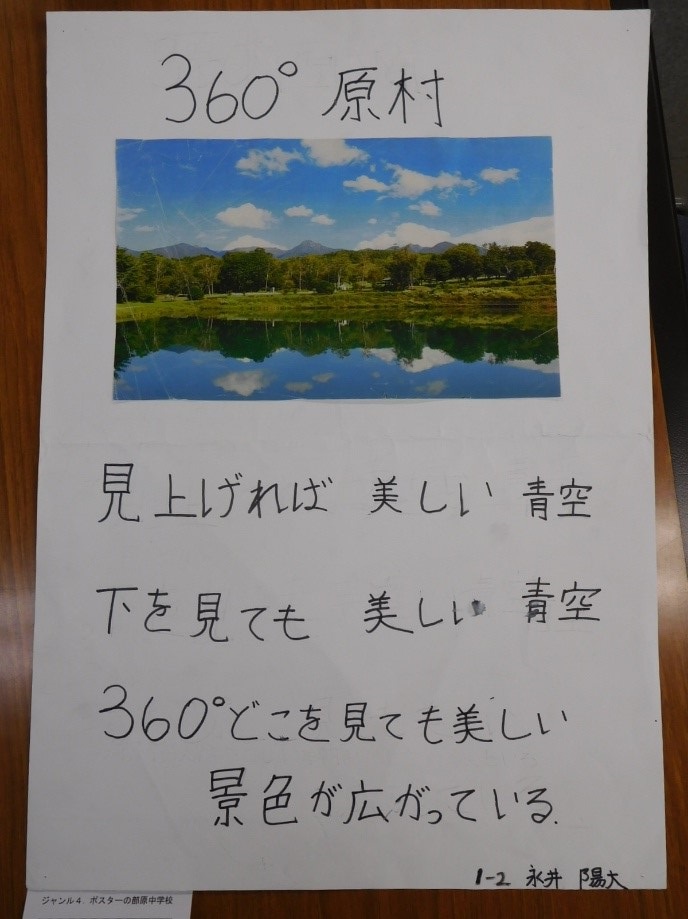 360° 原村
見上げれば 美しい 青空
下を見ても 美しい 青空
360°どこを見ても美しい
景色が広がっている.
1-2 永井 陽大
ジャンル4. ポスターの部原中学校